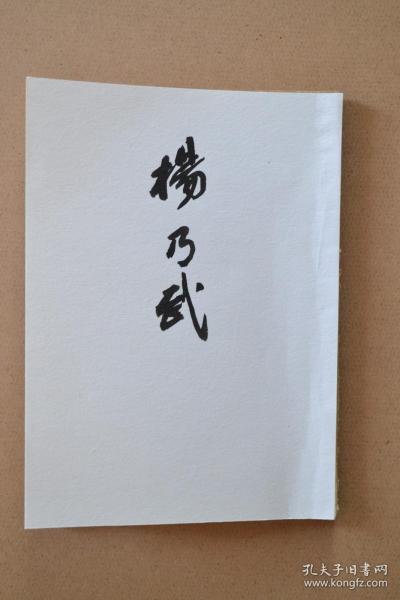 楊乃武
孔夫子旧书网
www.kongfz.com